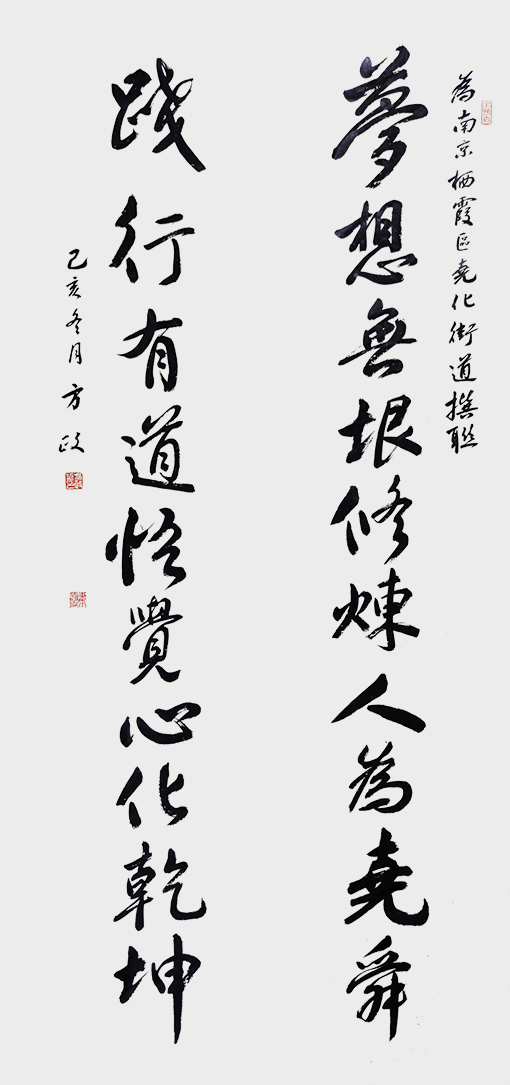 為南京栖霞區堯化街道撰聯
夢想無垠修煉人為堯舜
踐行有道悟覺心化乾坤
己亥冬月方政